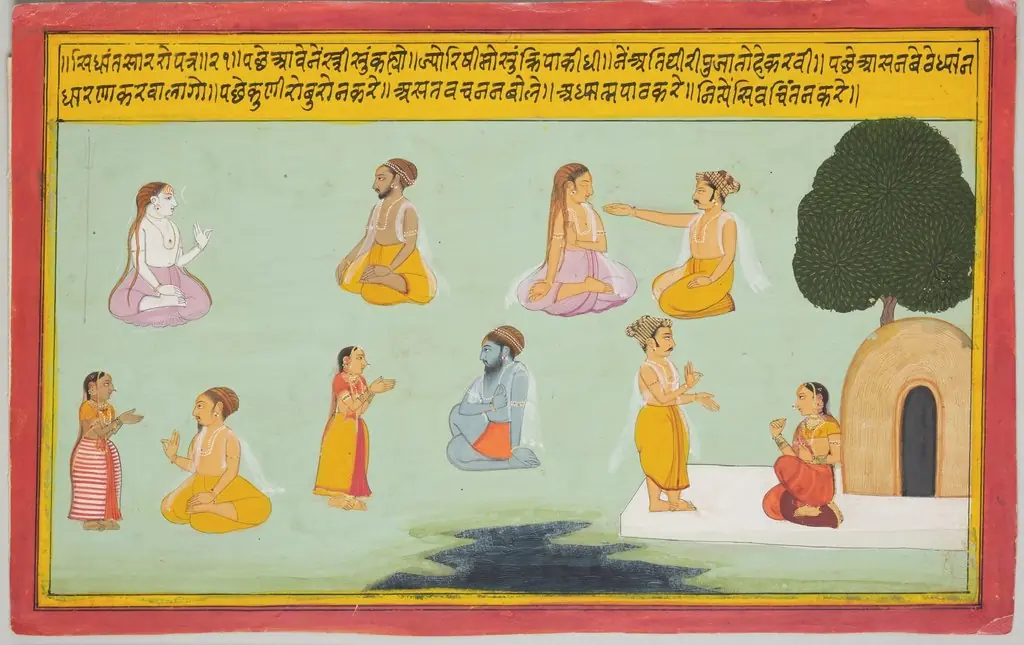 ॥सिधांतसाररो पत्र॥२१॥पछे आवेनें स्त्री सुं कह्यो॥ज्यो रिषी मो सुं क्रिपा कीधी॥नें अतिथीरी पुजा तोहे करवी॥पछे आसन बेठे ध्यांन
धारणा करवा लागो॥पछे कुणी रो बुरो न करे॥असत वचन न बोले॥अध्यात्म पाठ करे॥नित्यें सिव चिंतन करे॥